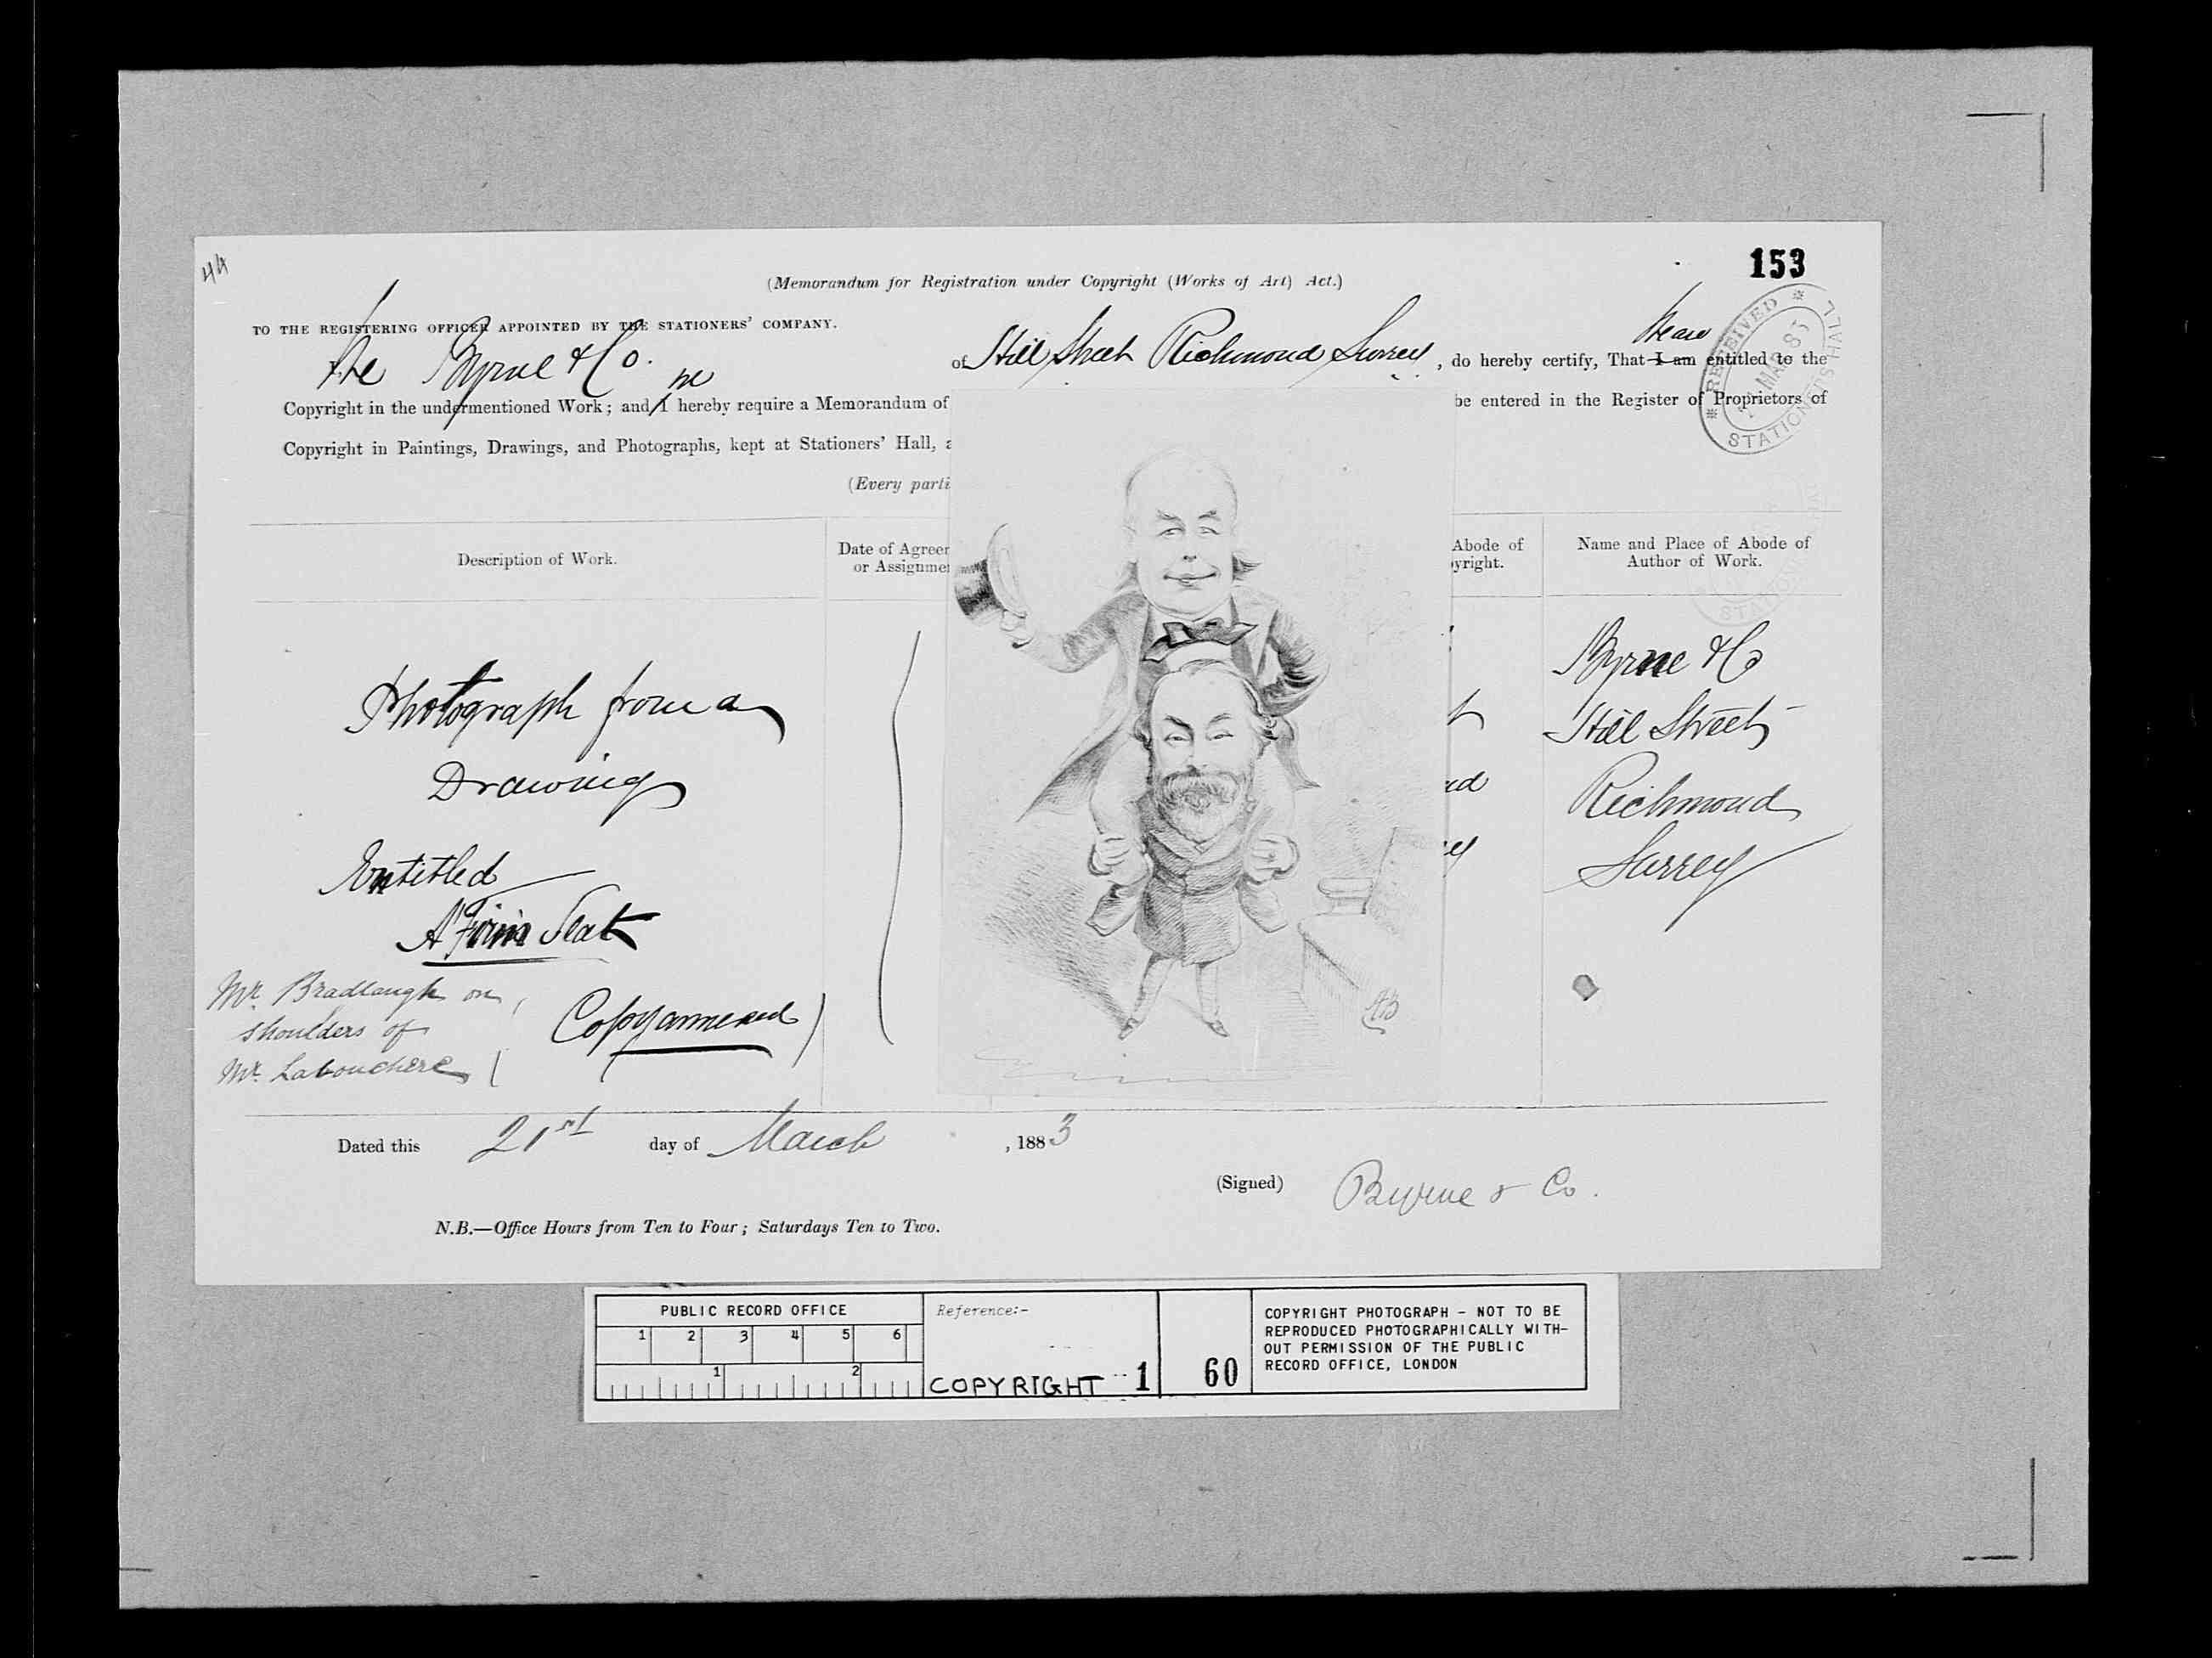 44
153
(Memorandum for Registration under Copyright (Works of Art) Act.)
TO THE REGISTERING OFFICER APPOINTED BY THE STATIONERS' COMPANY.
We Byrne & Co. of Hill Street Richmond Surrey, do hereby certify, That I am We are entitled to the
Copyright in the undermentioned Work; and I we hereby require a Memorandum of be entered in the Register of Proprietors of
Copyright in Paintings, Drawings, and Photographs, kept at Stationers' Hall, a
(Every parti
RECEIVED
MAR 83
STATIONERS HALL
Description of Work.
Date of Agreer
or Assignme
Abode of
yright.
Name and Place of Abode of
Author of Work.
Photograph from a
Drawing
Entitled
A Firm Seat
Mr. Bradlaugh on
shoulders of
Mr. Labouchere
(Copy annexed)
t
nd
ey
Byrne & Co
Hill Street
Richmond
Surrey
AB
Dated this 21st day of March, 1883
(Signed) Byrne & Co.
N.B.—Office Hours from Ten to Four; Saturdays Ten to Two.
PUBLIC RECORD OFFICE
1 2 3 4 5 6
1 2
Reference:-
COPYRIGHT 1
60
COPYRIGHT PHOTOGRAPH - NOT TO BE
REPRODUCED PHOTOGRAPHICALLY WITH-
OUT PERMISSION OF THE PUBLIC
RECORD OFFICE, LONDON